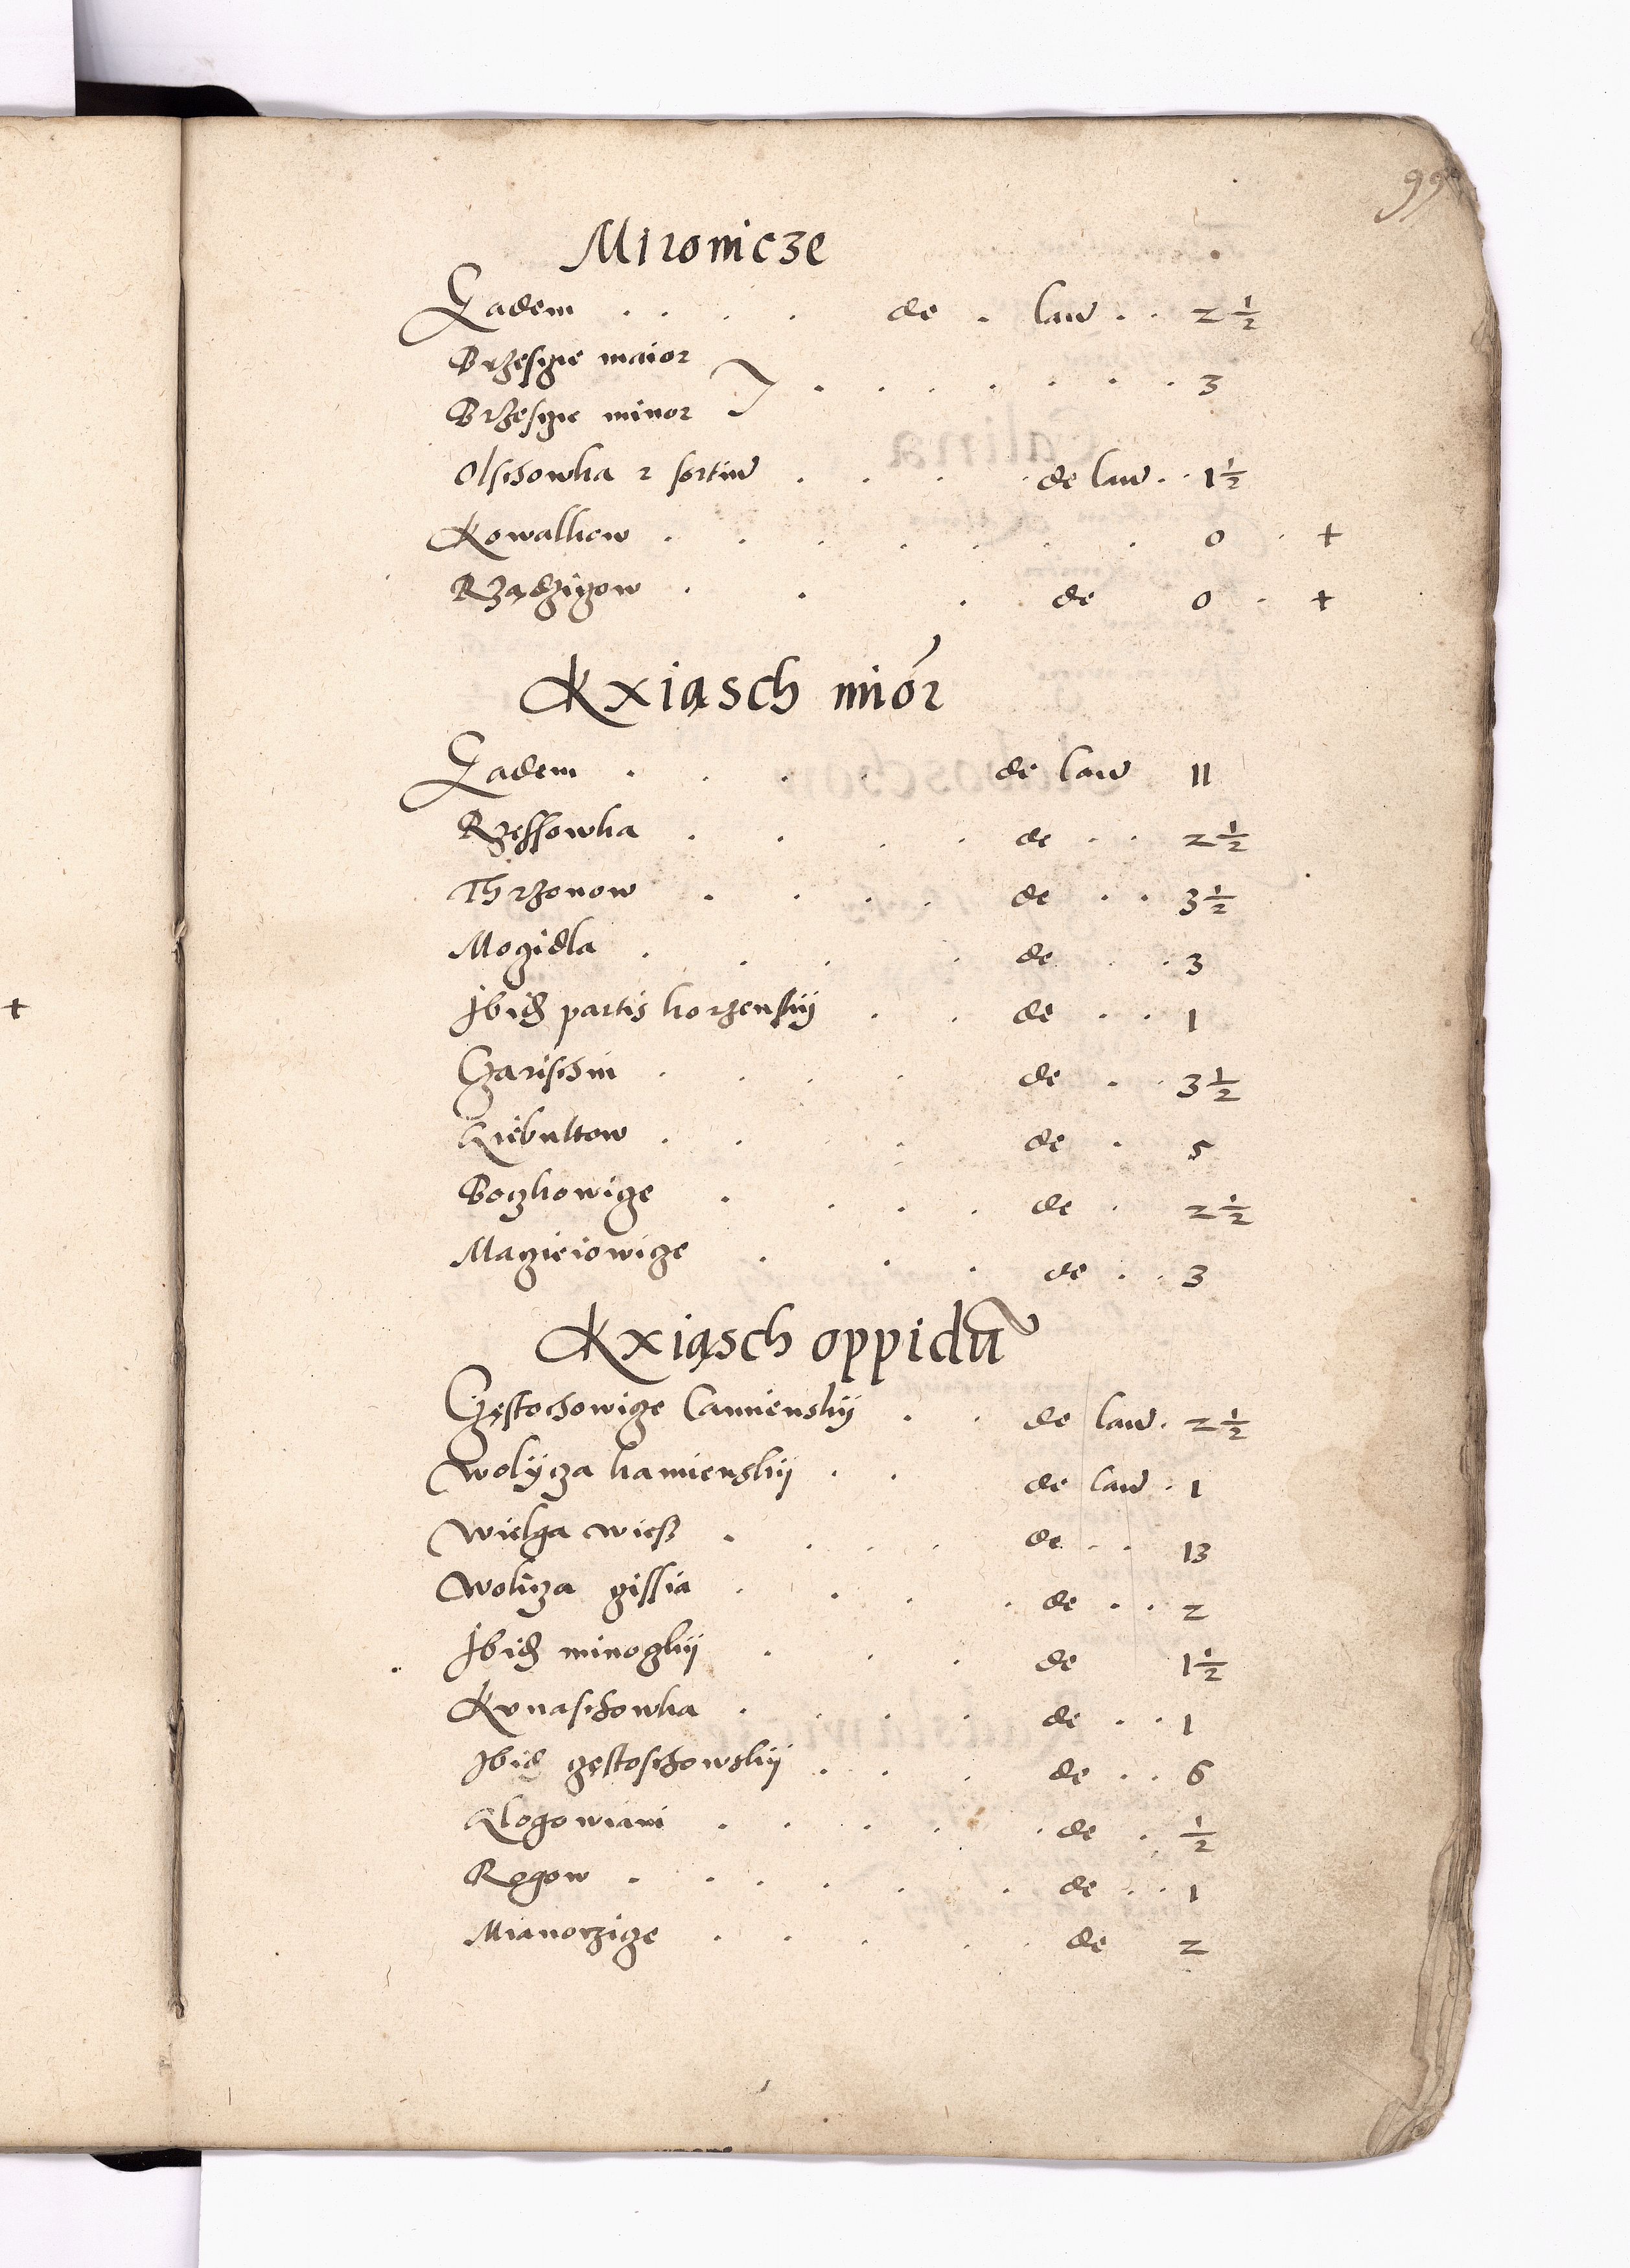 99
Mironicze
Eadem . . . . de . lan̄ . . 2 1/2
Brzescze maior
Brzescze minor } . . . . . . . 3
Olschowka 2 sortiū . . . . de lan̄ . . 1 1/2
Kowalkow . . . . . . . 0 . +
Rządzigow . . . . de 0 . +
Kxiąsch mior̄
Eadem . . . . de lan̄ 11
Rzessowka . . . . de . . 2 1/2
Thrzonow . . . . de . . 3 1/2
Mogidla . . . . de . . 3
Ibid partis korzenskij . . de . . 1
Czarischin . . . . de . . 3 1/2
Kiebultow . . . de . 5
Boczkowicze . . . . de . 2 1/2
Maczieiowicze . . . de . . 3
Kxiąsch oppidū
Czestochowicze Camienskij . . de lan̄ . 2 1/2
Wolijcza kamienskij . . de lan̄ . 1
Wielga wiess . . . . de . . 13
Wolicza . . . . de . . 2
Ibid minoczkij . . . de 1 1/2
Kunaschowka . . . . de . . 1
Ibid czestoschowskij . . . de . . 6
Klogowiani . . . . . de . 1/2
Rogow . . . . . . de . . 1
Mianoczicze . . . . . de 2
+